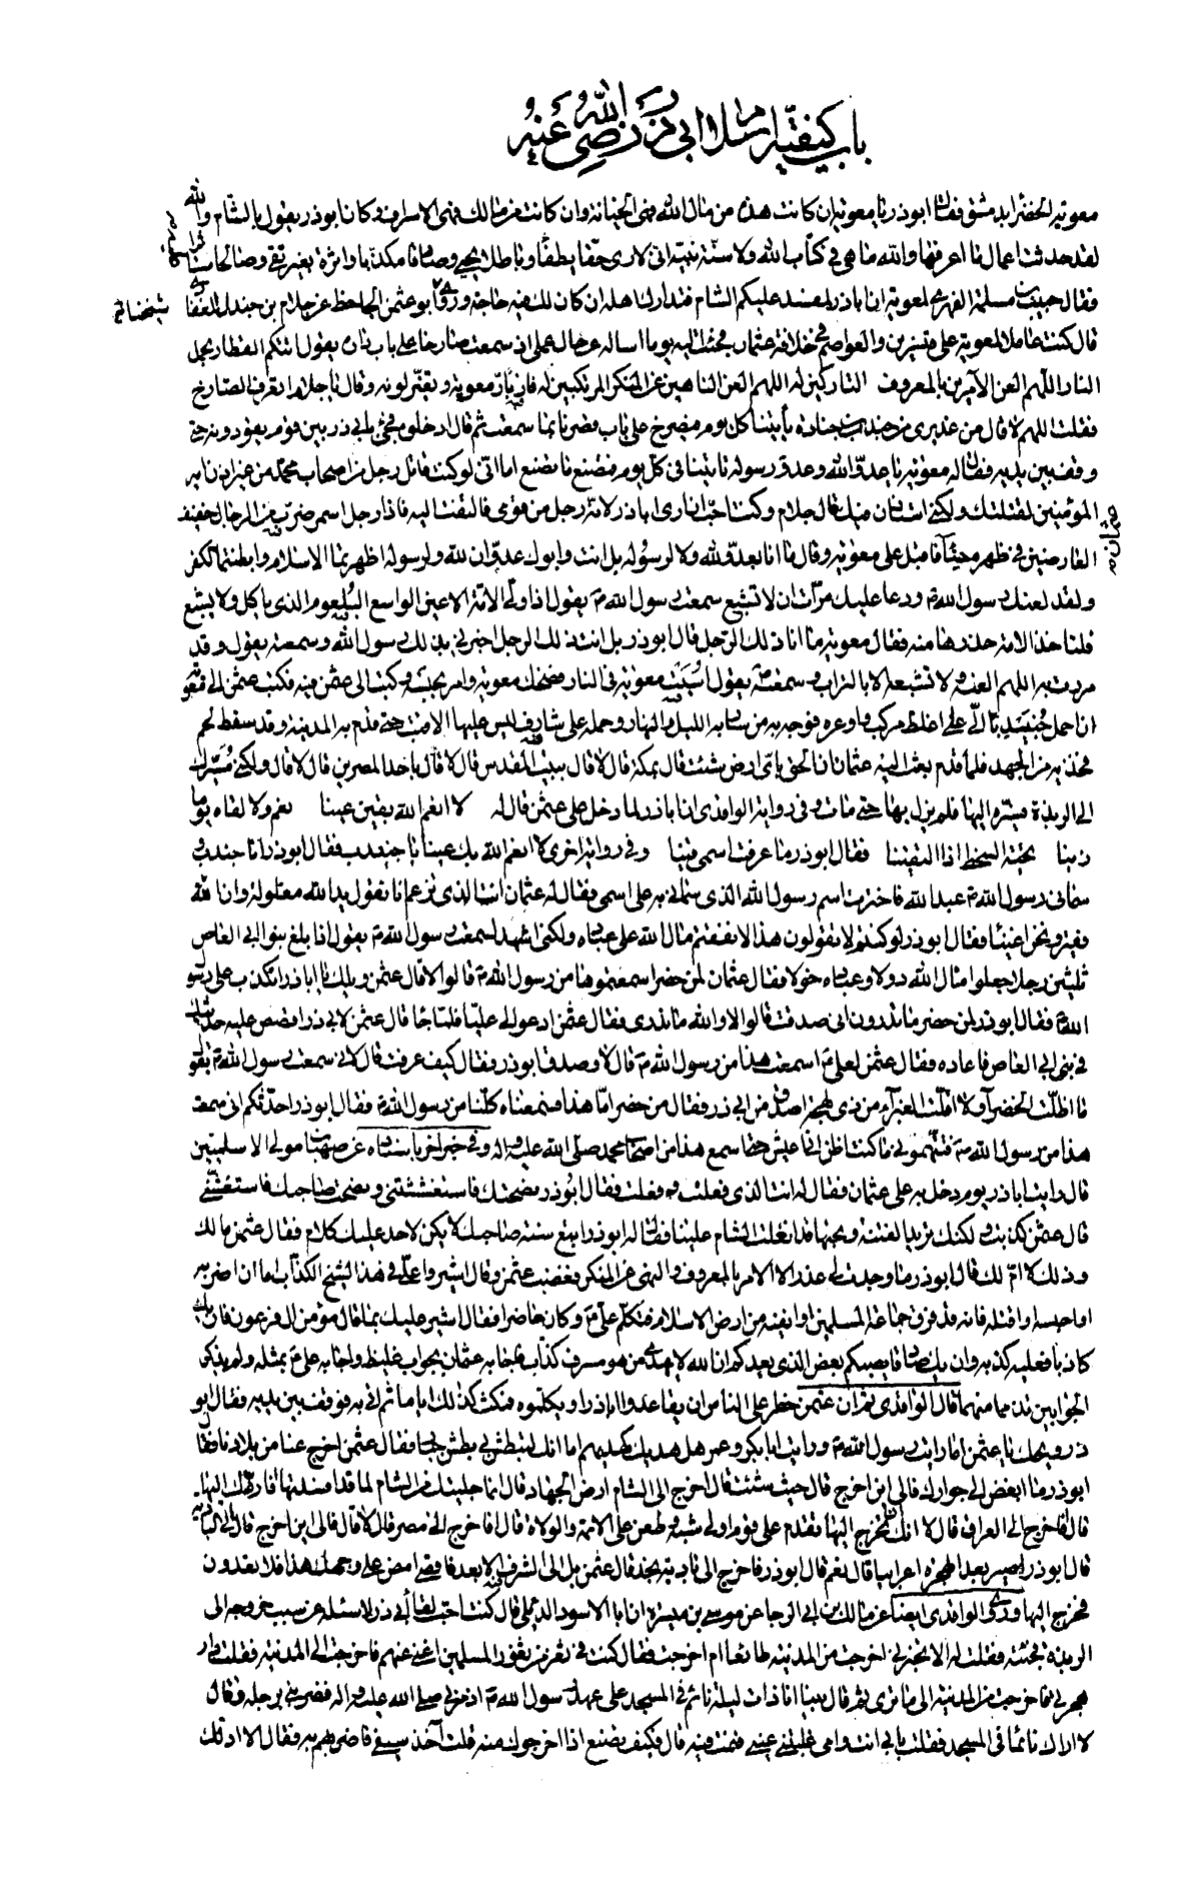 باب كيفية إرسال ابي ذر رضي الله عنه
معوية الخضراء بدمشق فقال ابوذر يا معوية ان كانت هذه من مال الله فهي الخيانة وان كانت من مالك فهي الاسراف وكان ابوذر يقول بالشام والله
لقد حدثت اعمال ما اعرفها والله ما هي في كتاب الله ولا سنة نبيه اني لارى حقا يطفأ وباطلا يحيى وصادقا مكذبا واثرة بغير تقى وصالحا مستأثرا عليه
فقال حبيب بن مسلمة الفهري لمعوية ان اباذر لمفسد عليكم الشام فتدارك اهله ان كان لك فيه حاجة وروى ابو عثمن الجاحظ عن جلام بن جندل الغفاري
قال كنت عاملا لمعوية على قنسرين والعواصم في خلافة عثمان فجئت اليه يوما اساله عن حال عملي اذ سمعت صارخا على باب داره يقول اتتكم القطار بحمل
النار اللهم العن الآمرين بالمعروف التاركين له اللهم العن الناهين عن المنكر المرتكبين له فازبأر معوية وتغير لونه وقال يا جلام اتعرف الصارخ
فقلت اللهم لا قال من عذيري من جندب بن جنادة يأتينا كل يوم فيصرخ على باب قصرنا بما سمعت ثم قال ادخلوه علي فجيء بابي ذر بين قوم يقودونه حتى
وقف بين يديه فقال له معوية يا عدو الله وعدو رسوله تأتينا في كل يوم فتصنع ما تصنع اما اني لو كنت قاتل رجل من اصحاب محمد من غير اذن امير
المؤمنين لقتلتك ولكني استأذن فيك قال جلام وكنت احب ان ارى اباذر لانه رجل من قومي فالتفت اليه فاذا رجل اسمر ضرب من الرجال خفيف
العارضين في ظهره حناء فاقبل على معوية وقال ما انا بعدو لله ولا لرسوله بل انت وابوك عدوان لله ولرسوله اظهرتما الاسلام وابطنتما الكفر
ولقد لعنك رسول الله ودعا عليك مرات ان لا تشبع سمعت رسول الله يقول اذا ولي الامة الاعين الواسع البلعوم الذي ياكل ولا يشبع
فلتاخذ الامة حذرها منه فقال معوية ما انا ذلك الرجل قال ابوذر بل انت ذلك الرجل اخبرني بذلك رسول الله وسمعته يقول وقد
مررت به اللهم العنه ولا تشبعه الا بالتراب وسمعته يقول است معوية في النار فضحك معوية وامر بحبسه وكتب الى عثمن فيه فكتب عثمن الى معوية
ان احمل جنيدبا الي على اغلظ مركب واوعره فوجه به من سار به الليل والنهار وحمله على شارف ليس عليها الا قتب حتى قدم به المدينة وقد سقط لحم
فخذيه من الجهد فلما قدم بعث اليه عثمان ان الحق باي ارض شئت قال بمكة قال لا قال ببيت المقدس قال لا قال باحد المصرين قال لا قال ولكني مسيرك
الى الربذة فسيره اليها فلم يزل بها حتى مات وفي رواية الواقدي ان اباذر لما دخل على عثمن قال له لا انعم الله بقين عينا نعم ولا لقاه يوما
زينا تحية السخط اذا التقينا فقال ابوذر ما عرفت اسمي قينا وفي رواية اخرى لا انعم الله بك عينا يا جنيدب فقال ابوذر انا جندب و
سماني رسول الله عبدالله فاخترت اسم رسول الله الذي سماني به على اسمي فقال له عثمان انت الذي تزعم انا نقول يد الله مغلولة وان الله
فقير ونحن اغنياء فقال ابوذر لو كنتم لا تقولون هذا لانفقتم مال الله على عباده ولكني اشهد لسمعت رسول الله يقول اذا بلغ بنو ابي العاص
ثلثين رجلا جعلوا مال الله دولا وعباده خولا فقال عثمان لمن حضر اسمعتموها من رسول الله قالوا لا قال عثمن ويلك يا اباذر اتكذب على رسول
الله فقال ابوذر لمن حضر ما تدرون اني صدقت قالوا لا والله ما ندري فقال عثمن ادعوا لي عليا فلما جاء قال عثمن لابي ذر اقصص عليه حديثك
في بني ابي العاص فاعاده فقال عثمن لعلي اسمعت هذا من رسول الله قال لا وصدق ابوذر فقال كيف عرفت قال لاني سمعت رسول الله يقول
ما اظلت الخضراء ولا اقلت الغبراء من ذي لهجة اصدق من ابي ذر فقال من حضر اما هذا فسمعناه كلنا من رسول الله فقال ابوذر احدثكم اني سمعت
هذا من رسول الله فتتهموني ما كنت اظن اني اعيش حتى اسمع هذا من اصحاب محمد صلى الله عليه واله وفي خبر اخر باسناده عن صهبان مولى الاسلميين
قال رايت اباذر يوم دخل به على عثمان فقال له انت الذي فعلت وفعلت فقال ابوذر نصحتك فاستغششتني ونصحت صاحبك فاستغشني
قال عثمن كذبت ولكنك تريد الفتنة وتحبها قد انغلت الشام علينا فقال له ابوذر اتبع سنة صاحبيك لا يكن لاحد عليك كلام فقال عثمن ما لك
وذلك لا ام لك قال ابوذر ما وجدت لي عذرا الا الامر بالمعروف والنهي عن المنكر فغضب عثمن وقال اشيروا علي في هذا الشيخ الكذاب اما ان اضربه
او احبسه او اقتله فانه قد فرق جماعة المسلمين او انفيه من ارض الاسلام فتكلم علي وكان حاضرا فقال اشير عليك بما قال مؤمن ال فرعون فان يك
كاذبا فعليه كذبه وان يك صادقا يصبكم بعض الذي يعدكم ان الله لا يهدي من هو مسرف كذاب فاجابه عثمان بجواب غليظ واجابه علي بمثله ولم يذكر
الجوابين تذمما منهما قال الواقدي ثم ان عثمن حظر على الناس ان يقاعدوا اباذر او يكلموه فمكث كذلك اياما ثم اتي به فوقف بين يديه فقال ابو
ذر ويحك يا عثمن اما رايت رسول الله ورايت ابا بكر وعمر هل هديك كهديهم اما انك لتبطش بي بطش جبار فقال عثمن اخرج عنا من بلادنا فقال
ابوذر ما ابغض الي جوارك فالى اين اخرج قال حيث شئت قال اخرج الى الشام ارض الجهاد قال انما جلبتك من الشام لما قد افسدتها افاردك اليها
قال افاخرج الى العراق قال لا انك ان تخرج اليها تقدم على قوم اولى شبه وطعن على الائمة والولاة قال افاخرج الى مصر قال لا قال فالى اين اخرج قال الى البادية
قال ابوذر اصير بعد الهجرة اعرابيا قال نعم قال ابوذر فاخرج الى بادية نجد قال عثمن بل الى الشرف الابعد فاقصى امض على وجهك هذا فلا تعدون
فخرج اليها وروى الواقدي ايضا عن مالك بن ابي الرجا عن موسى بن ميسرة ان ابا الاسود الدئلي قال كنت احب لقاء ابي ذر لاسئله عن سبب خروجه الى
الربذة فجئته فقلت له الا تخبرني اخرجت من المدينة طائعا ام اخرجت فقال كنت في ثغر من ثغور المسلمين اغني عنهم فاخرجت الى المدينة فقلت دار
هجرتي فاخرجت من المدينة الى ما ترى ثم قال بينا انا ذات ليلة نائم في المسجد على عهد رسول الله اذ مر بي صلى الله عليه واله فضربني برجله وقال
لا اراك نائما في المسجد فقلت بابي انت وامي غلبتني عيني فنمت فيه قال فكيف تصنع اذا اخرجوك منه قلت آخذ سيفي فاضربهم به فقال الا ادلك